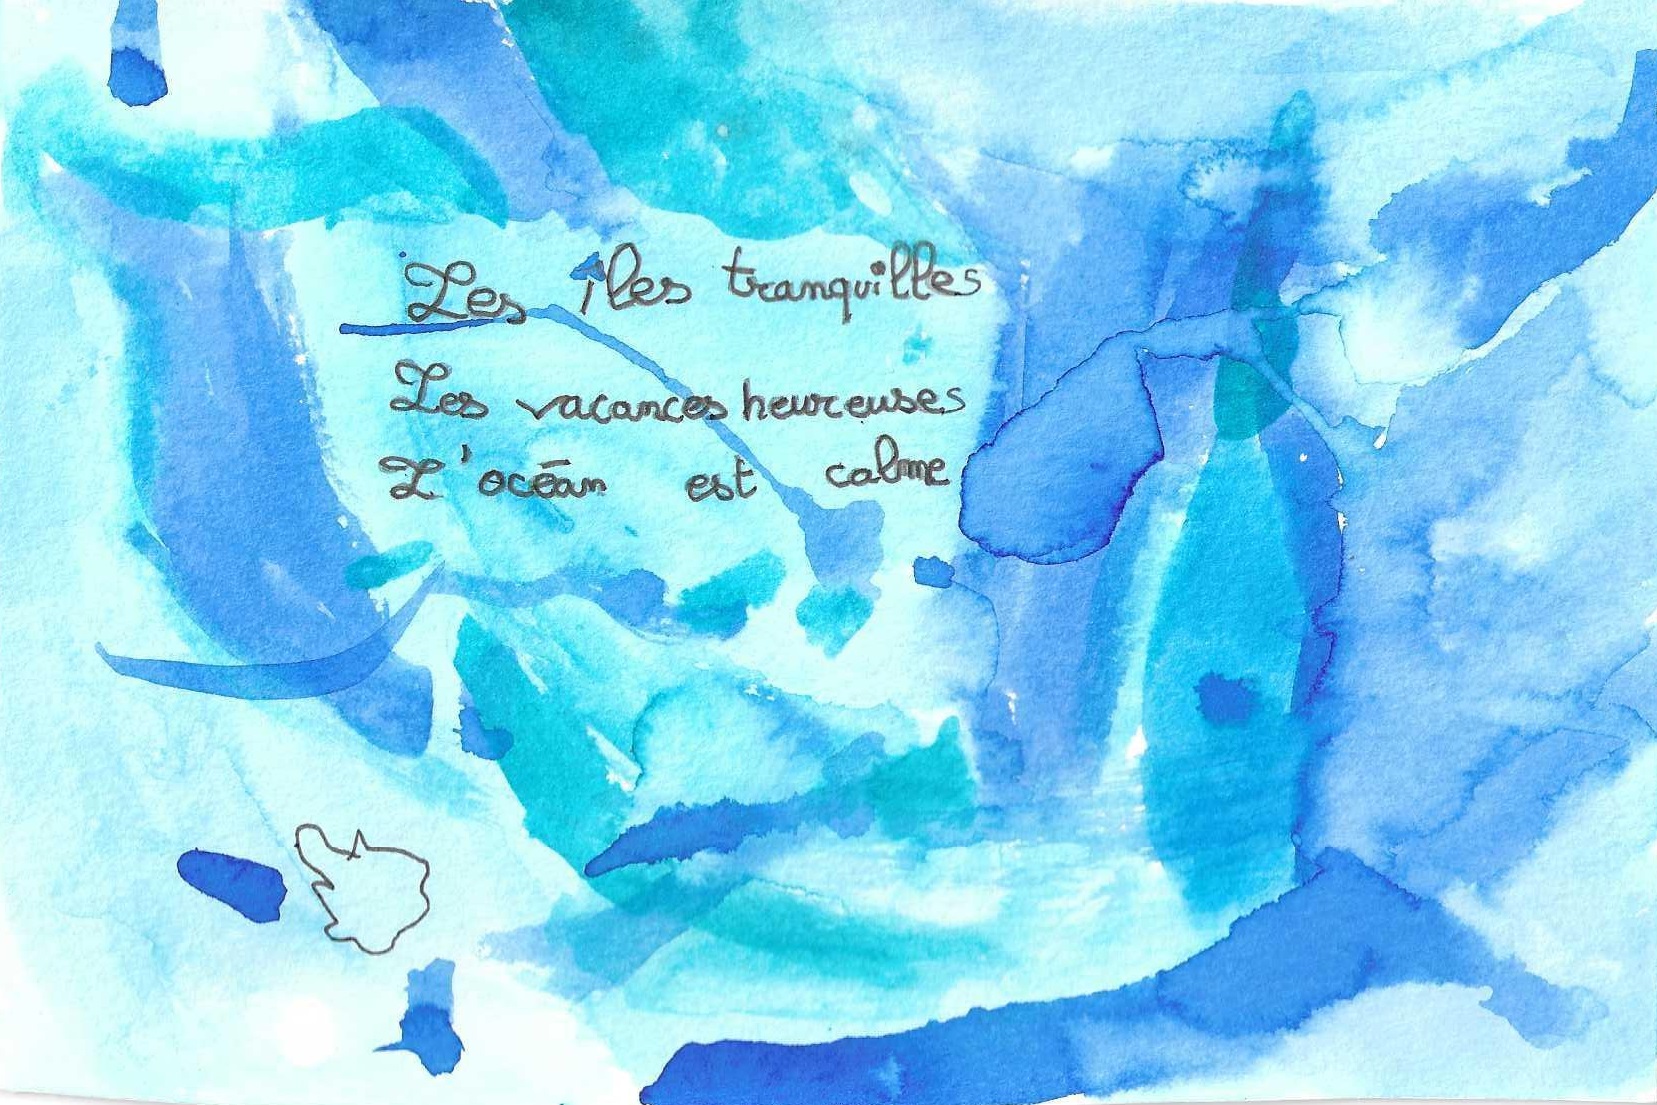 Les îles tranquilles
Les vacances heureuses
L'océan est calme